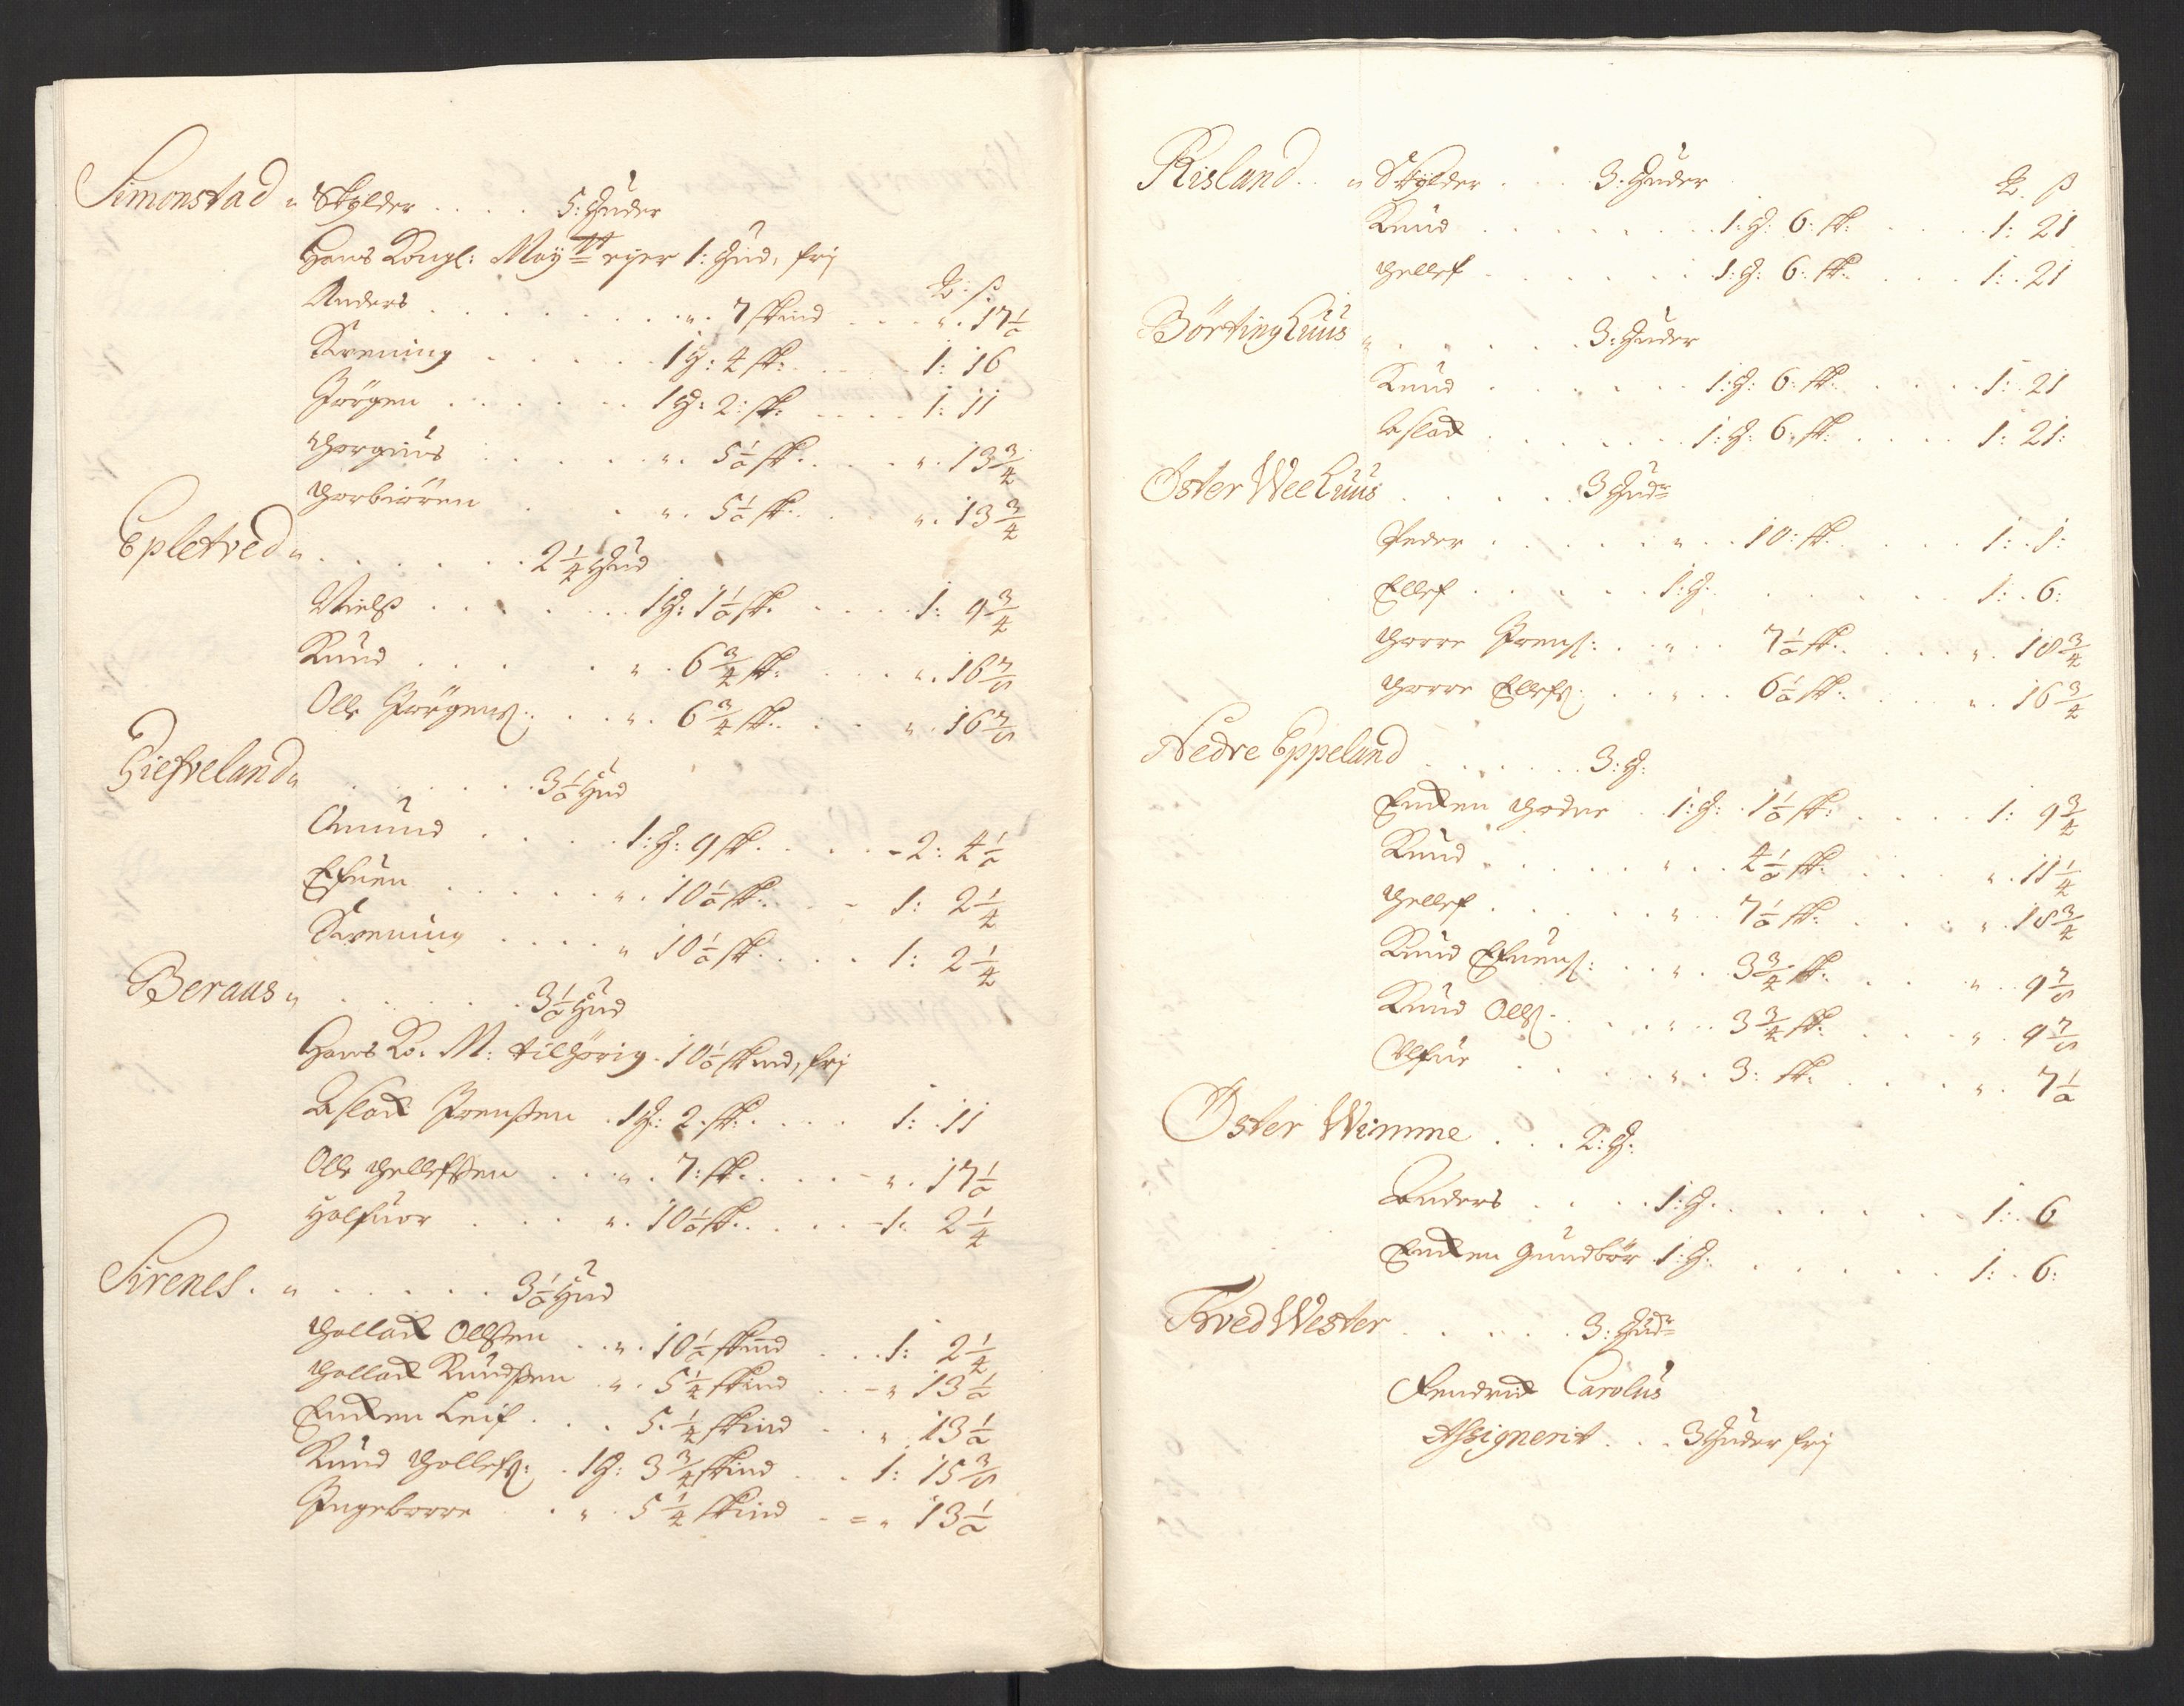 Simonstad „ Skylder . . . . 5: Huder
Hans Kongl: Maytt ejer 1: Hud, frj
℔: ß:
Anders . . . . . . . . „. 7 skind . . . „. 17½
Trenning . . . . . 1 H: 4 sk: . . . 1: 16
Jörgen . . . . . . 1 H: 2: sk: . . . . 1: 11
Thorgius . . . . . „. 5½ sk: . . . „. 13¾
Thorbiörren . . . „. 5½ sk: . . „. 13¾
Epletved „ . . . . . . 2¼ Hud
Nielß . . . . . . 1 H: 1½ sk: . . . . 1: 9¾
Knud . . . . . . „. 6¾ sk: . . . „. 16⅞
Olle Jörgens: . . . „. 6¾ sk: . . . „. 16⅞
Giefveland „ . . . . . . 3½ Hud
Amund . . . . . 1: H: 9 sk: . . . . - 2: 4½
Efuen . . . . . . „. 10½ sk: . . - 1: 2¼
Trenning . . . . „ 10½ sk: . . . . 1: 2¼
Beraas „ . . . . . . 3½ Hud
Hans Ko: M: tilhörig. 10½ skind, frj
Aslack Jrenßen . 1 H: 2. sk: . . . . 1: 11
Olle Thellefßen . . . „. 7: sk: . . . . - „. 17½
Halfuor . . . . „. 10½ sk: . . . . - 1. 2¼
Sirenes . „ . . . . . . 3½ Hud
Thollack Ollßen . . „. 10½ skind . . . 1: 2¼
Thollack Knudßen . „. 5¼ skind . . - „ 13½
Encken Leif . . . 5. ¼ skind . . . „ 13½
Knud Thollefs: . 1 H: 3¾ skind . . . 1: 15⅜
Jngeborre . . „. 5¼ skind . = „ 13½
Risland . . „ Skylder . . . 3: Huder
℔. ß
Knud . . . . . . . . 1: H: 6: sk: . . . . . 1: 21
Thellef . . . . . . . 1: H: 6: sk: . . . . 1: 21
Börting Huus „ . . . . . . 3: Huder
Knud . . . . . . 1: H: 6: sk: . . . . . 1: 21
Aslack . . . . . . . 1: H: 6: sk: . . . . 1: 21:
Öster Wee Huus . . . . . 3 Hudr
Peder . . . . . . „. . 10: sk: . . . . . 1: 1:
Ellef . . . . . . 1: H: . . . . . . . 1: . 6:
Thorre Jrens: . . „. . 7½ sk: . . . „. 18¾
Thorre Ellefs: . . . „. . 6½ sk: . . . „. 16¾
Nedre Eppeland . . . . . . 3: H:
Encken Thodne . 1: H: 1½ sk: . . . . 1: 9¾
Knud . . . . . . „. . 4½ sk: . . . „. 11¼
Thellef . . . . . . „. . 7½ sk: . . . „. 18¾
Knud Efuens: . . „. . 3¾ sk: . . . „. . 9⅞
Knud Olls: . . . . „. . 3¾ sk: . . . „. 9⅞
Olfue . . . . . „. . 3: sk: . . . „. 7½
Öster Wimme . . . 2: H:
Anders . . . . 1: H: . . . . . . . 1: . 6
Encken Gundbör 1: H: . . . . . . . 1: . 6:
Tved Wester . . . . . . 3: Hudr
Fendrick Carolus
Assignerit . . . 3 Huder frj